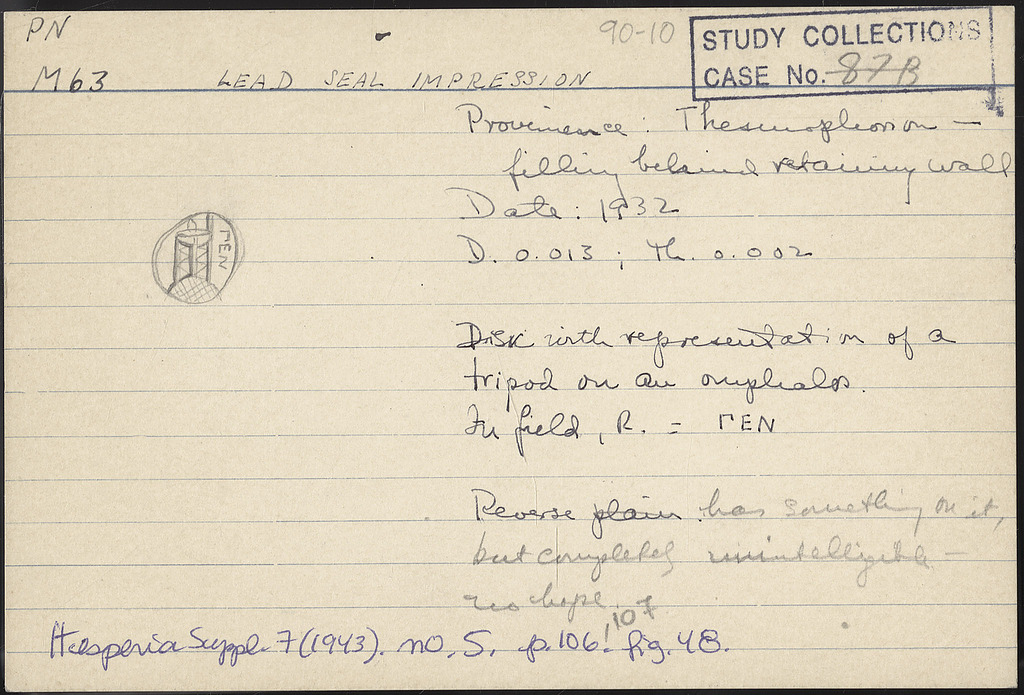 PN
90-10
STUDY COLLECTIONS
CASE No. 87B
M63 LEAD SEAL IMPRESSION
Provenience: Thesmophorion —
filling behind retaining wall
Date: 1932
D. 0.013; Th. 0.002
ΓΕΝ
Disk with representation of a
tripod on an omphalos.
In field, R. = ΓΕΝ
Reverse plain. has something on it,
but completely unintelligible —
no hope.
107
Hesperia Suppl. 7 (1943). no. 5. p. 106! fig. 48.